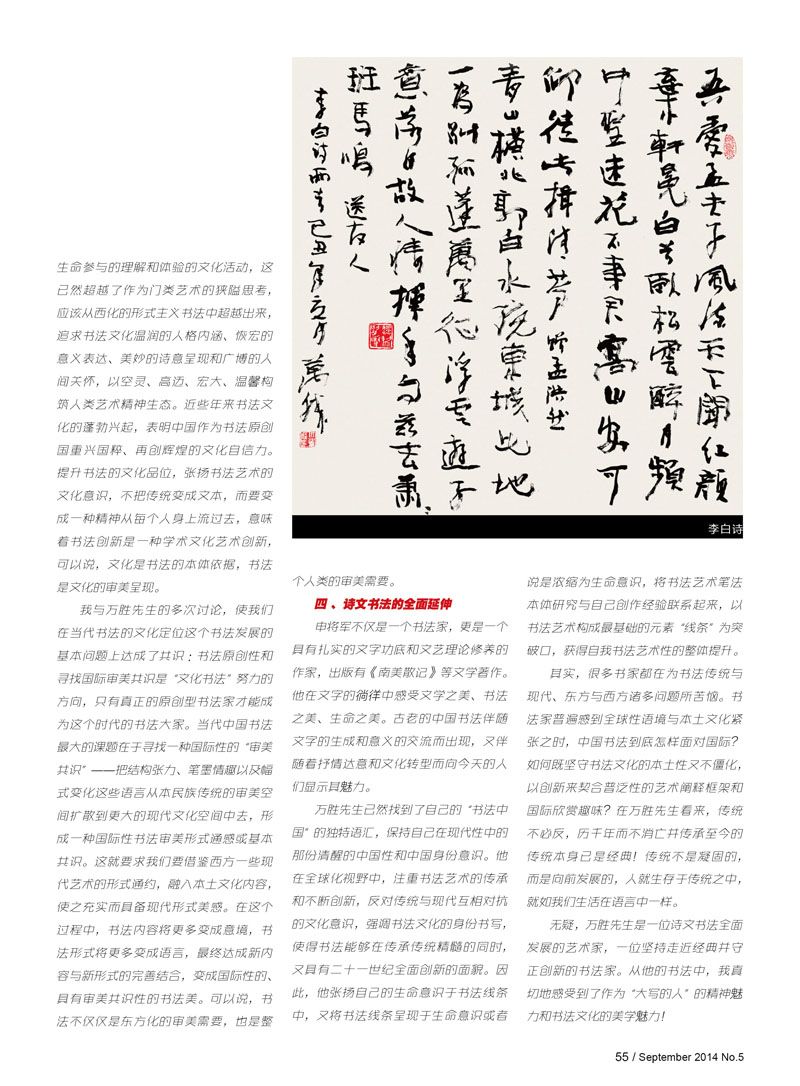 吾愛孟夫子風流天下聞红颜
棄軒冕白首臥松雲醉月頻
中聖迷花不事君高山安可
仰徒此揖清芬 贈孟浩然
青山横北郭白水绕東城此地
一為別孤蓬萬里征浮雲遊子
意落日故人情揮手自兹去蕭々
班馬鳴 送友人
李白诗两首己丑年 月 萬勝
李白诗
生命参与的理解和体验的文化活动，这
已然超越了作为门类艺术的狭隘思考，
应该从西化的形式主义书法中超越出来，
追求书法文化温润的人格内涵、恢宏的
意义表达、美妙的诗意呈现和广博的人
间关怀，以空灵、高迈、宏大、温馨构
筑人类艺术精神生态。近些年来书法文
化的蓬勃兴起，表明中国作为书法原创
国重兴国粹、再创辉煌的文化自信力。
提升书法的文化品位，张扬书法艺术的
文化意识，不把传统变成文本，而要变
成一种精神从每个人身上流过去，意味
着书法创新是一种学术文化艺术创新，
可以说，文化是书法的本体依据，书法
是文化的审美呈现。
我与万胜先生的多次讨论，使我们
在当代书法的文化定位这个书法发展的
基本问题上达成了共识：书法原创性和
寻找国际审美共识是“文化书法”努力的
方向，只有真正的原创型书法家才能成
为这个时代的书法大家。当代中国书法
最大的课题在于寻找一种国际性的“审美
共识”——把结构张力、笔墨情趣以及幅
式变化这些语言从本民族传统的审美空
间扩散到更大的现代文化空间中去，形
成一种国际性书法审美形式通感或基本
共识。这就要求我们要借鉴西方一些现
代艺术的形式通约，融入本土文化内容，
使之充实而具备现代形式美感。在这个
过程中，书法内容将更多变成意境，书
法形式将更多变成语言，最终达成新内
容与新形式的完善结合，变成国际性的、
具有审美共识性的书法美。可以说，书
法不仅仅是东方化的审美需要，也是整
个人类的审美需要。
四、诗文书法的全面延伸
申将军不仅是一个书法家，更是一个
具有扎实的文字功底和文艺理论修养的
作家，出版有《南美散记》等文学著作。
他在文字的徜徉中感受文学之美、书法
之美、生命之美。古老的中国书法伴随
文字的生成和意义的交流而出现，又伴
随着抒情达意和文化转型而向今天的人
们显示其魅力。
万胜先生已然找到了自己的“书法中
国”的独特语汇，保持自己在现代性中的
那份清醒的中国性和中国身份意识。他
在全球化视野中，注重书法艺术的传承
和不断创新，反对传统与现代互相对抗
的文化意识，强调书法文化的身份书写，
使得书法能够在传承传统精髓的同时，
又具有二十一世纪全面创新的面貌。因
此，他张扬自己的生命意识于书法线条
中，又将书法线条呈现于生命意识或者
说是浓缩为生命意识，将书法艺术笔法
本体研究与自己创作经验联系起来，以
书法艺术构成最基础的元素“线条”为突
破口，获得自我书法艺术性的整体提升。
其实，很多书家都在为书法传统与
现代、东方与西方诸多问题所苦恼。书
法家普遍感到全球性语境与本土文化紧
张之时，中国书法到底怎样面对国际？
如何既坚守书法文化的本土性又不僵化，
以创新来契合普泛性的艺术阐释框架和
国际欣赏趣味？在万胜先生看来，传统
不必反，历千年而不消亡并传承至今的
传统本身已是经典！传统不是凝固的，
而是向前发展的，人就生存于传统之中，
就如我们生活在语言中一样。
无疑，万胜先生是一位诗文书法全面
发展的艺术家，一位坚持走近经典并守
正创新的书法家。从他的书法中，我真
切地感受到了作为“大写的人”的精神魅
力和书法文化的美学魅力！
55 / September 2014 No.5